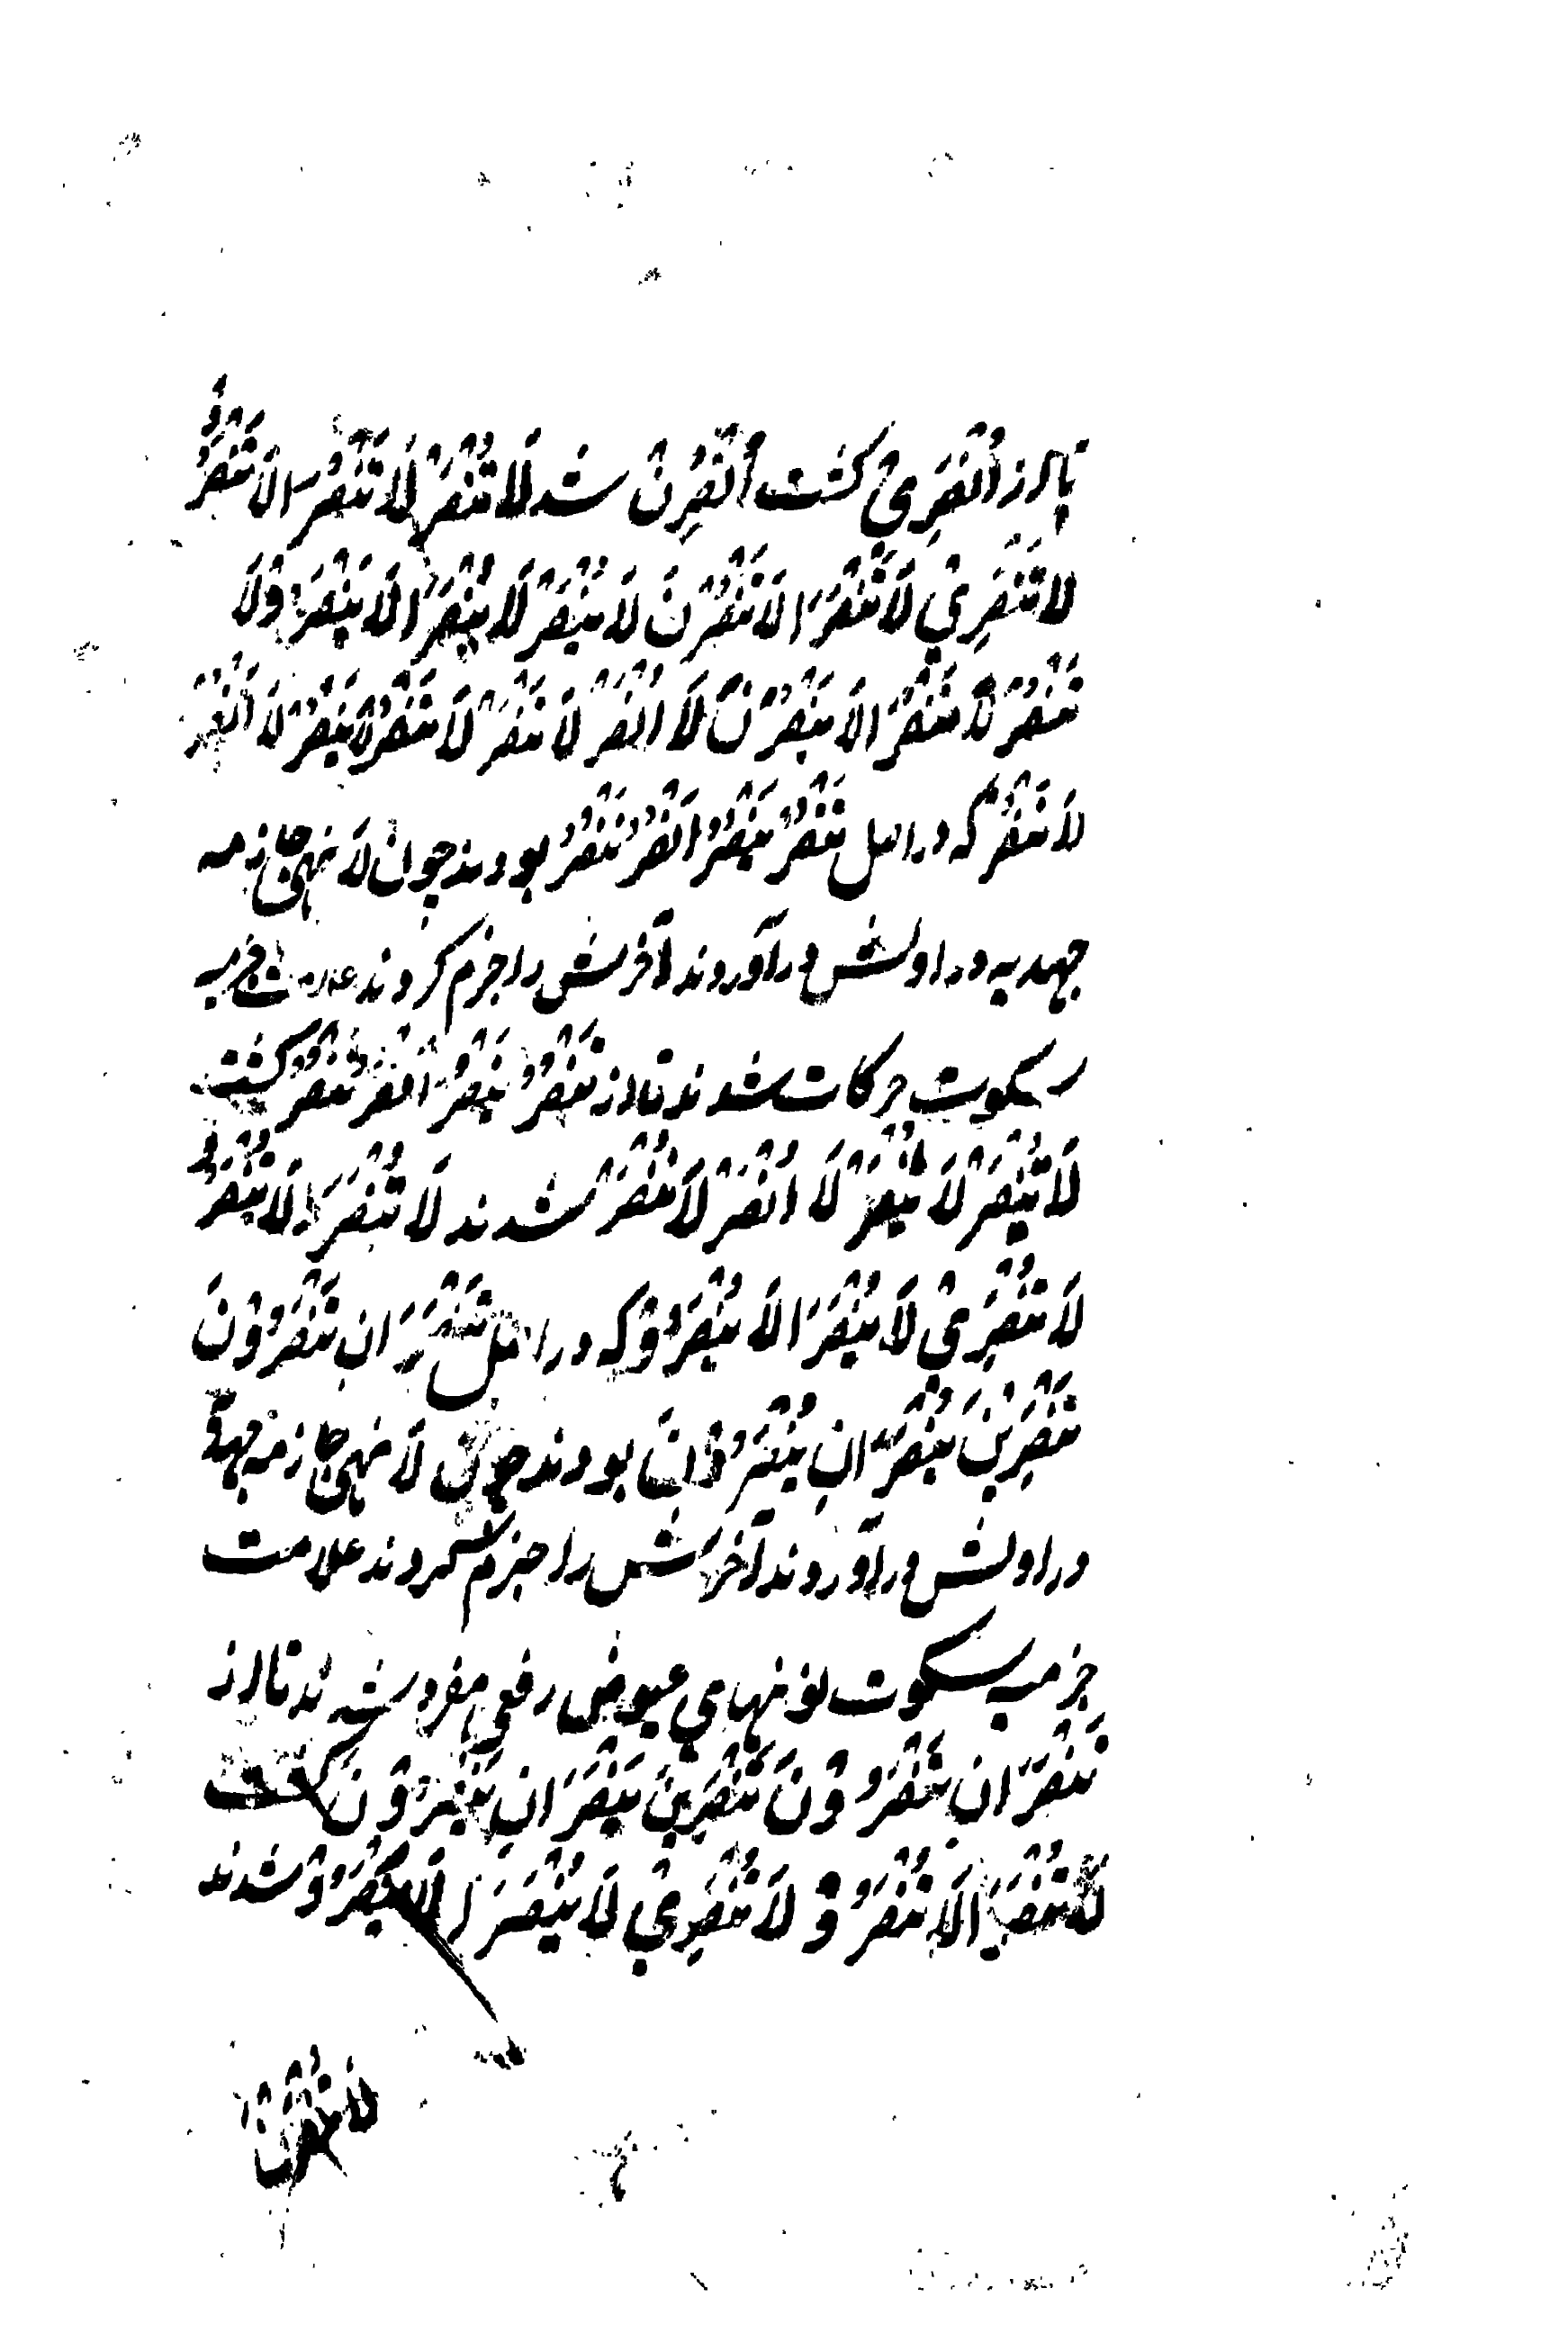 تا از اُنْصُرِیْ گشت اُنْصُرْنَ شد لَا تُنْصَرْ لَا تَنْصُرَا لَا تَنْصُرُوْ
لَا تَنْصُرِیْ لَا تَنْصُرَا لَا تَنْصُرْنَ لَا یَنْصُرْ لَا یَنْصُرَا لَا یَنْصُرُوْ لَا
تَنْصُرْ لَا تَنْصُرَا لَا یَنْصُرْنَ لَا اَنْصُرْ لَا نَنْصُرْ لَا تَنْصُرْ لَا یَنْصُرْ لَا اَنْصُرْ
لَا نَنْصُرْ که در اصل تَنْصُرُ یَنْصُرُ اَنْصُرُ نَنْصُرُ بودند چون لَا نهی جازمه
جهدیه در اولش در آوردند آخرش را جزم کردند علامت جزمیه
سکوت حرکات شدند تا از تَنْصُرُ یَنْصُرُ اَنْصُرُ نَنْصُرُ گشت
لَا تَنْصُرْ لَا یَنْصُرْ لَا اَنْصُرْ لَا نَنْصُرْ شدند لَا تَنْصُرَا لَا تَنْصُرُوْ
لَا تَنْصُرِیْ لَا یَنْصُرَا لَا یَنْصُرُوْ که در اصل تَنْصُرَانِ تَنْصُرُوْنَ
تَنْصُرِیْنَ یَنْصُرَانِ یَنْصُرُوْنَ بودند چون لَا نهی جازمه جهدیه
در اولش در آوردند آخرش را جزم کردند علامت
جزمیه سکوت نونهای عیوض رفعی مفرد شدند تا از
تَنْصُرَانِ تَنْصُرُوْنَ تَنْصُرِیْنَ یَنْصُرَانِ یَنْصُرُوْنَ گشت
لَا تَنْصُرَا لَا تَنْصُرُوْ لَا تَنْصُرِیْ لَا یَنْصُرَا لَا یَنْصُرُوْ شدند